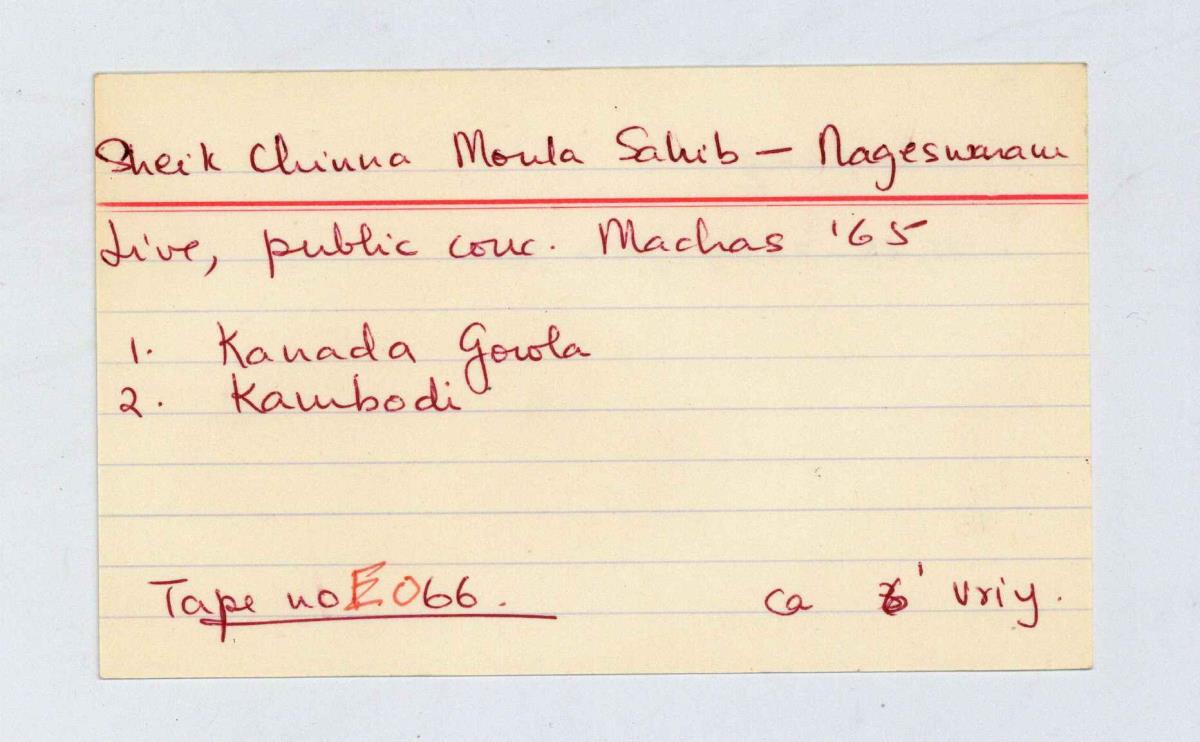 Sheik Chinna Moula Sahib — Nageswaram
Live, public conc. Madras '65
1. Kanada Gowla
2. Kambodi
Tape no E066.
ca 6' vrij.